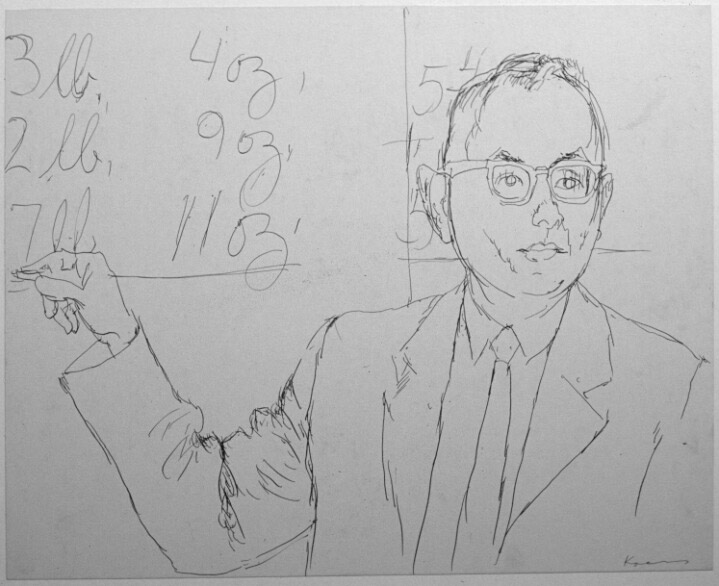 3 lb, 4 oz,
2 lb, 9 oz,
7 lb 11 oz,
54
5